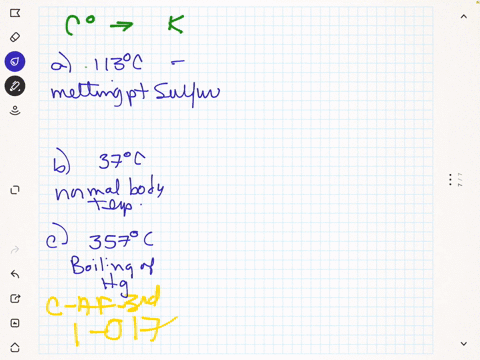 C° → K
a) .113°C -
meltting pt Sulfur
b) 37°C
normal body
temp.
c) 357°C
Boiling of
Hg
C-AF-3rd
1-017
7 / 7